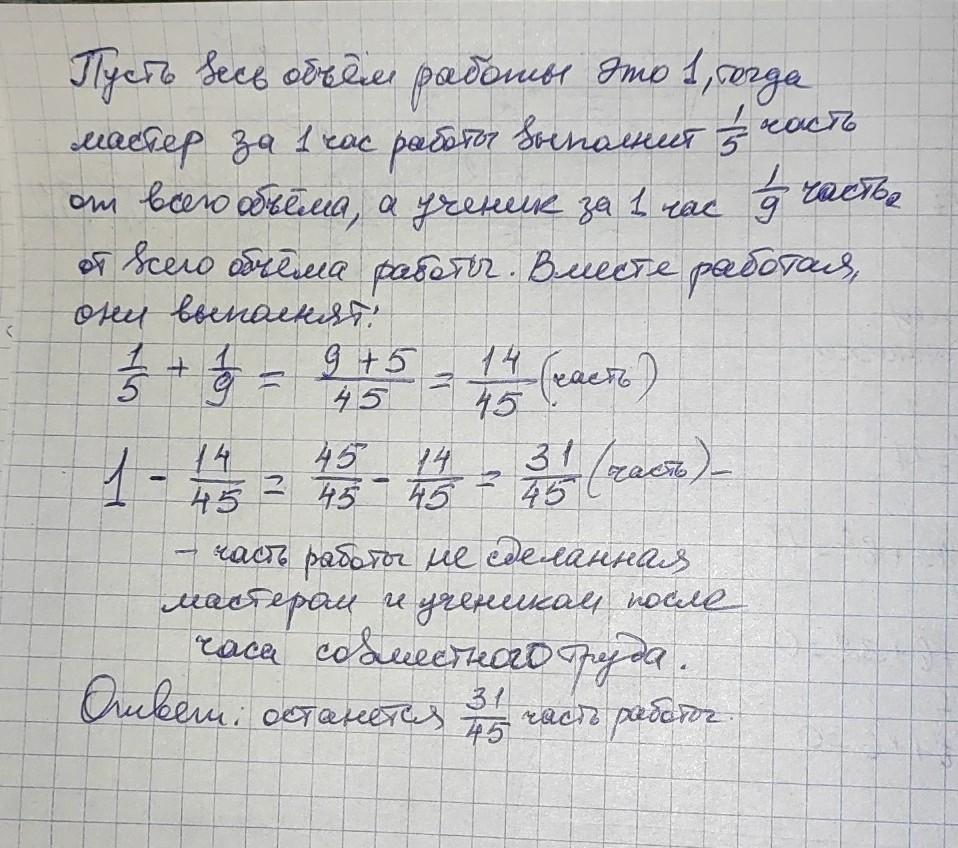 Пусть весь объём работы это 1, тогда
мастер за 1 час работы выполнит 1/5 часть
от всего объёма, а ученик за 1 час 1/9 часть
от всего объёма работы. Вместе работая,
они выполнят:
1/5 + 1/9 = (9 + 5)/45 = 14/45 (часть)
1 - 14/45 = 45/45 - 14/45 = 31/45 (часть) –
– часть работы не сделанная
мастером и учеником после
часа совместного труда.
Ответ: останется 31/45 часть работы.